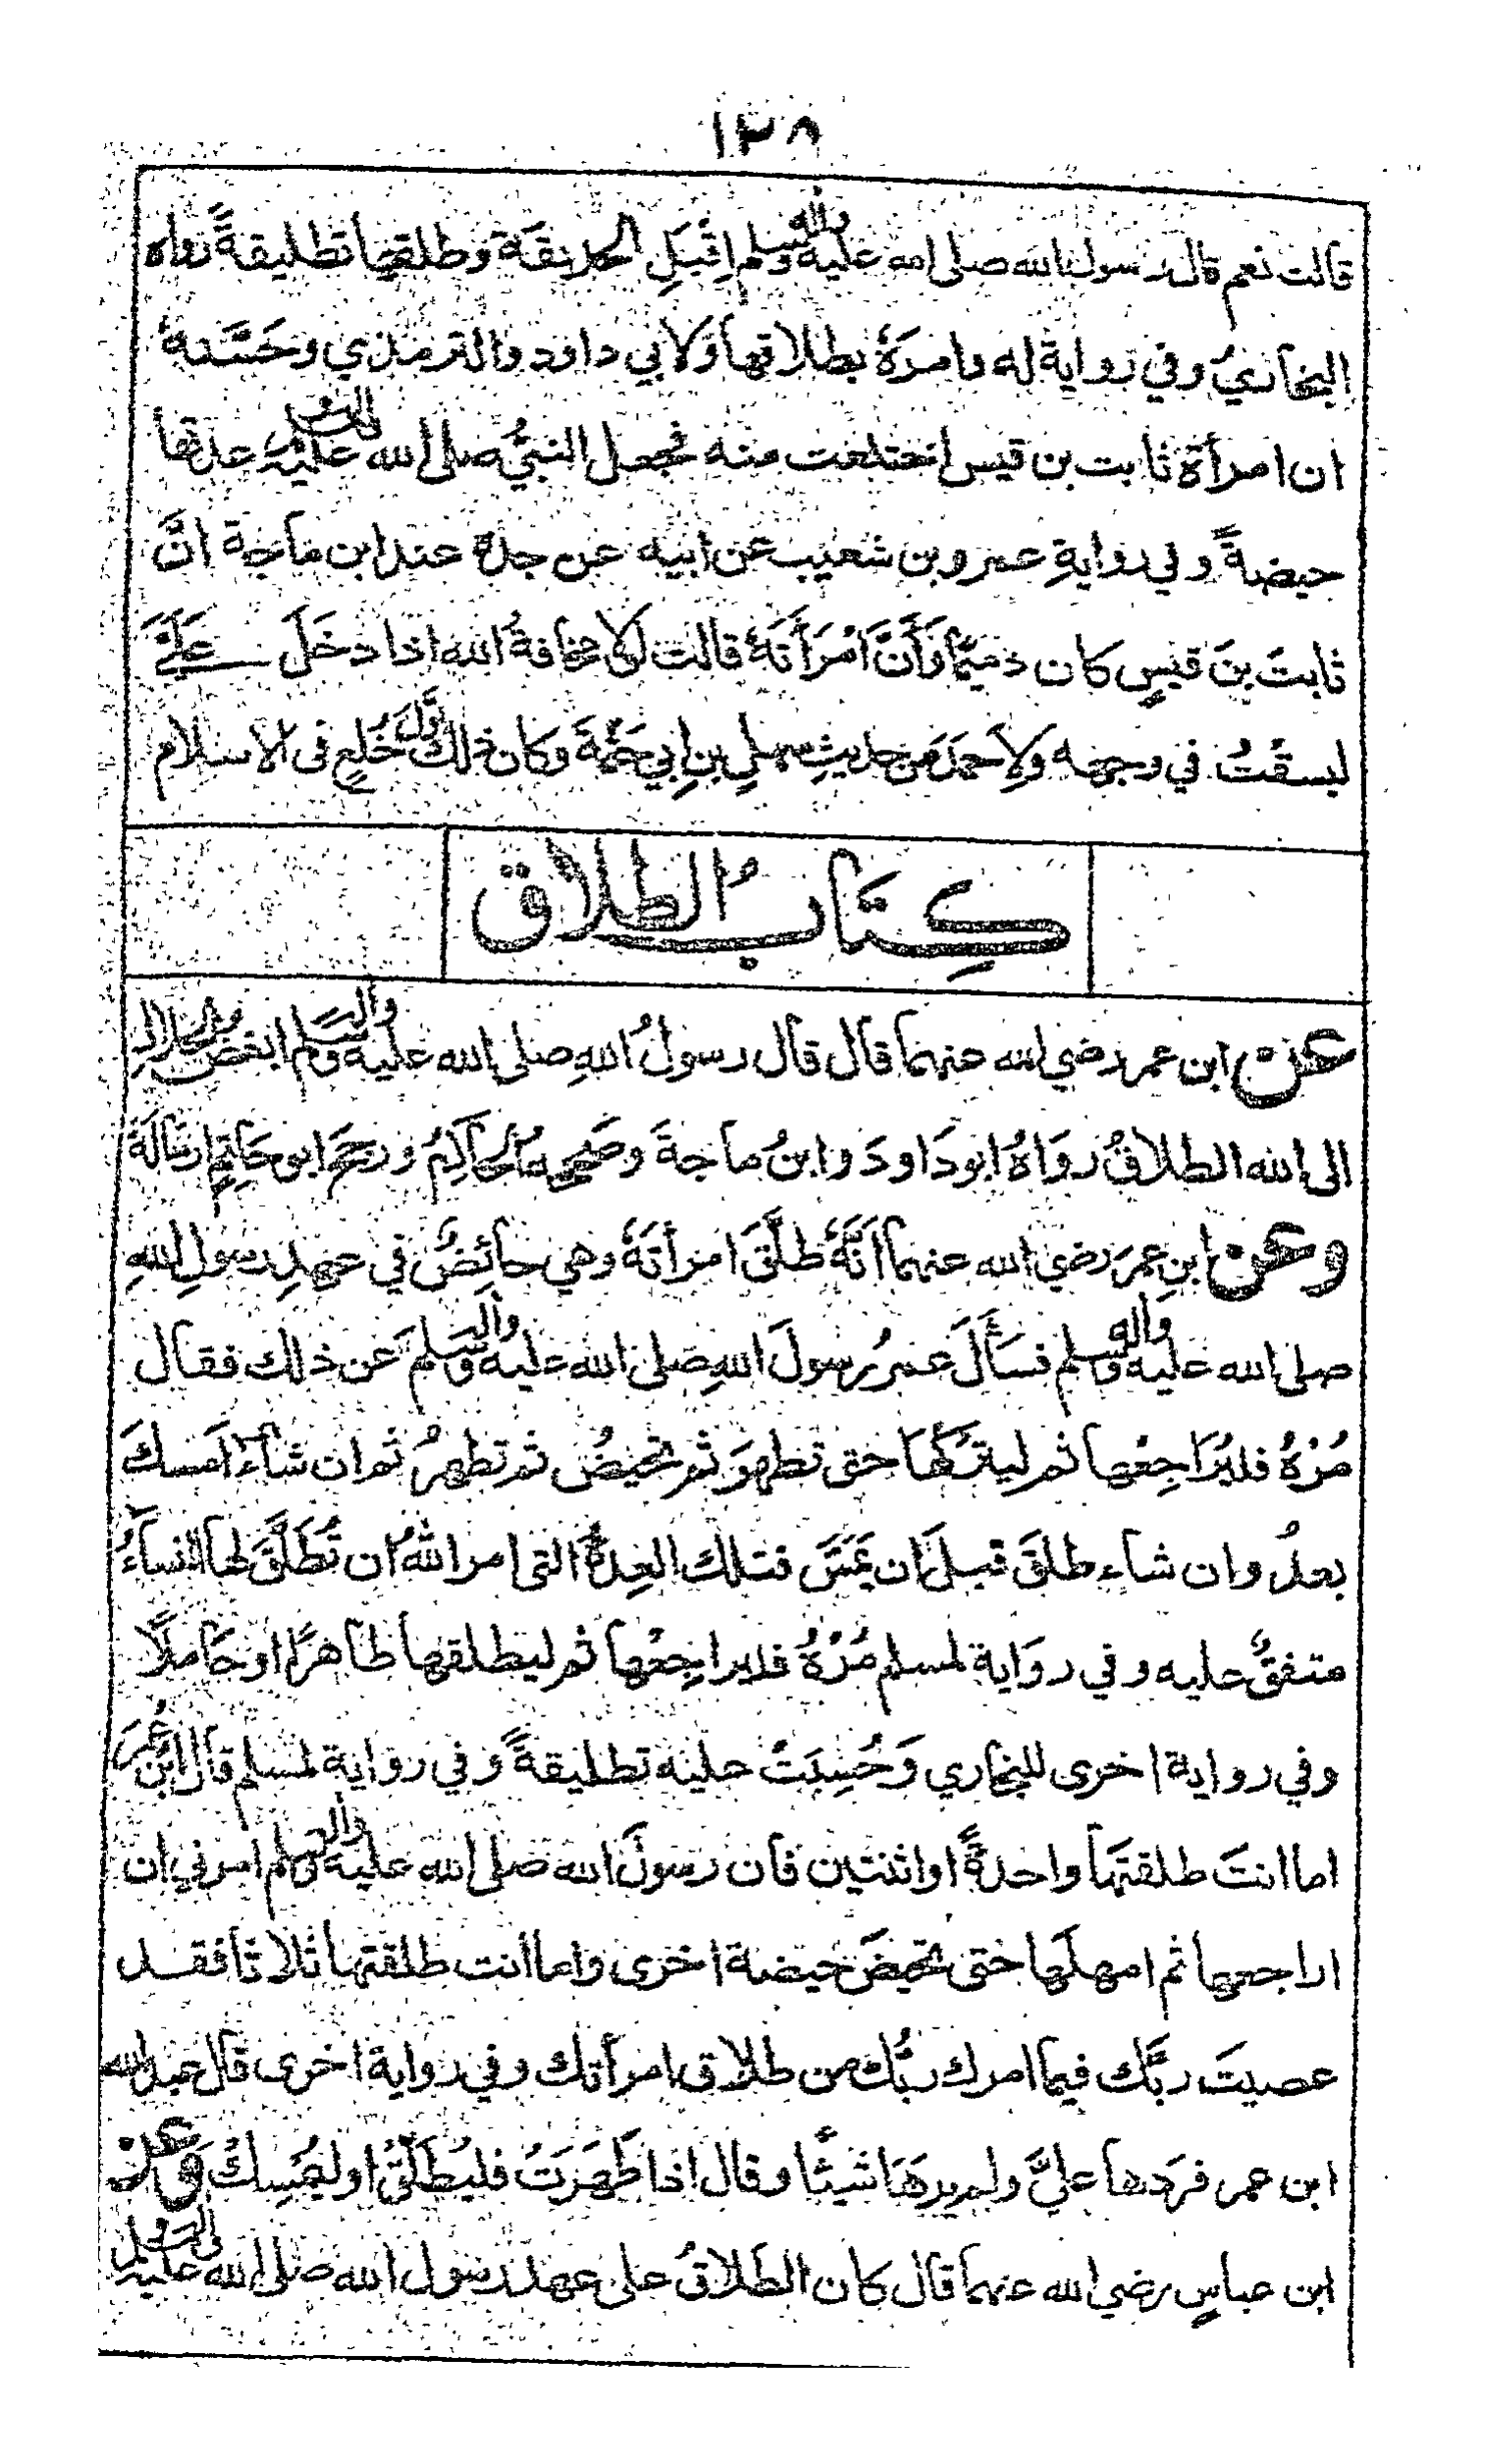 ١٣٨
قالت نعم قال رسول الله صلى الله عليه واله وسلم اِقْبَلِ الحديقَةَ وطلقيها تطليقةً رواه
البخاريُّ وفي رواية له وامرَهُ بطلاقها وَلابي داود والترمذي وحَسَّنهُ
ان امرأة ثابت بن قيس اختلعت منه فجعل النبيُّ صلى الله عليه واله وسلم عدتها
حيضةً وفي روايةِ عمرو بن شعيب عن ابيه عن جدهٖ عند ابن ماجة انَّ
ثابتَ بنَ قيسٍ كان دميمًا وَأَنَّ امْرَأَتَهُ قالت لَوْلا مخافةُ الله اذا دخَلَ عَلَيَّ
لبسقْتُ في وجهه ولِاَحمدَ من حديثِ سهلِ بنِ ابي حَثْمَةَ وكان ذلك اَوَّلَ خُلعٍ في الاسلام
كِتَابُ الطلاق
عن ابن عمر رضي الله عنهما قال قال رسولُ اللهِ صلى الله عليه واله وسلم ابغض الحلالِ
الى الله الطلاقُ رواهُ ابو داود وابنُ ماجةَ وصححه الحاكِمُ ورجح ابو حاتِمٍ ارسالَهُ
وعن ابنِ عمرَ رضي الله عنهما أَنَّهُ طلَّقَ امرأتهُ وهي حائِضٌ في عهدِ رسولِ اللهِ
صلى الله عليه واله وسلم فسَأَلَ عمرُ رسولَ اللهِ صلى الله عليه واله وسلم عَن ذلك فقال
مُرْهُ فليُرَاجِعْها ثم ليترُكْهَا حتى تطهرَ ثم تحيضُ ثم تطهرُ ثم ان شآءَ امسكَ
بعدُ وان شاء طلقَ قبلَ ان يَمَسَّ فتلك العِدةُ التي امر اللهُ ان تُطَلَّقَ لها النسآءُ
متفقٌ عليه وفي روَاية لمسلم مُرْهُ فليراجِعْها ثم ليطلقها طاهرًا او حَاملًا
وفي رواية اخرى للبخاري وَحُسِبَتْ عليه تطليقةً وفي رواية لمسلم قال ابن عمر
اما انتَ طلقتَها واحدةً او اثنتين فان رسولَ الله صلى الله عليه واله وسلم امرني ان
اراجعها ثم امهلَها حتى تحيضَ حيضة اخرى واما انت طلقتها ثلاثا فقد
عصيتَ ربَّك فيما امرك ربُّك من طلاق امرأتك وفي رواية اخرى قال عبد الله
ابن عمر فرَدها عليَّ ولم يرهَا شيئًا وقال اذا طَهَرَتْ فليُطَلِّقْ او ليُمْسِكْ وَعن
ابن عباسٍ رضي الله عنهما قال كان الطلاقُ على عهد رسول الله صلى الله عليه واله وسلم